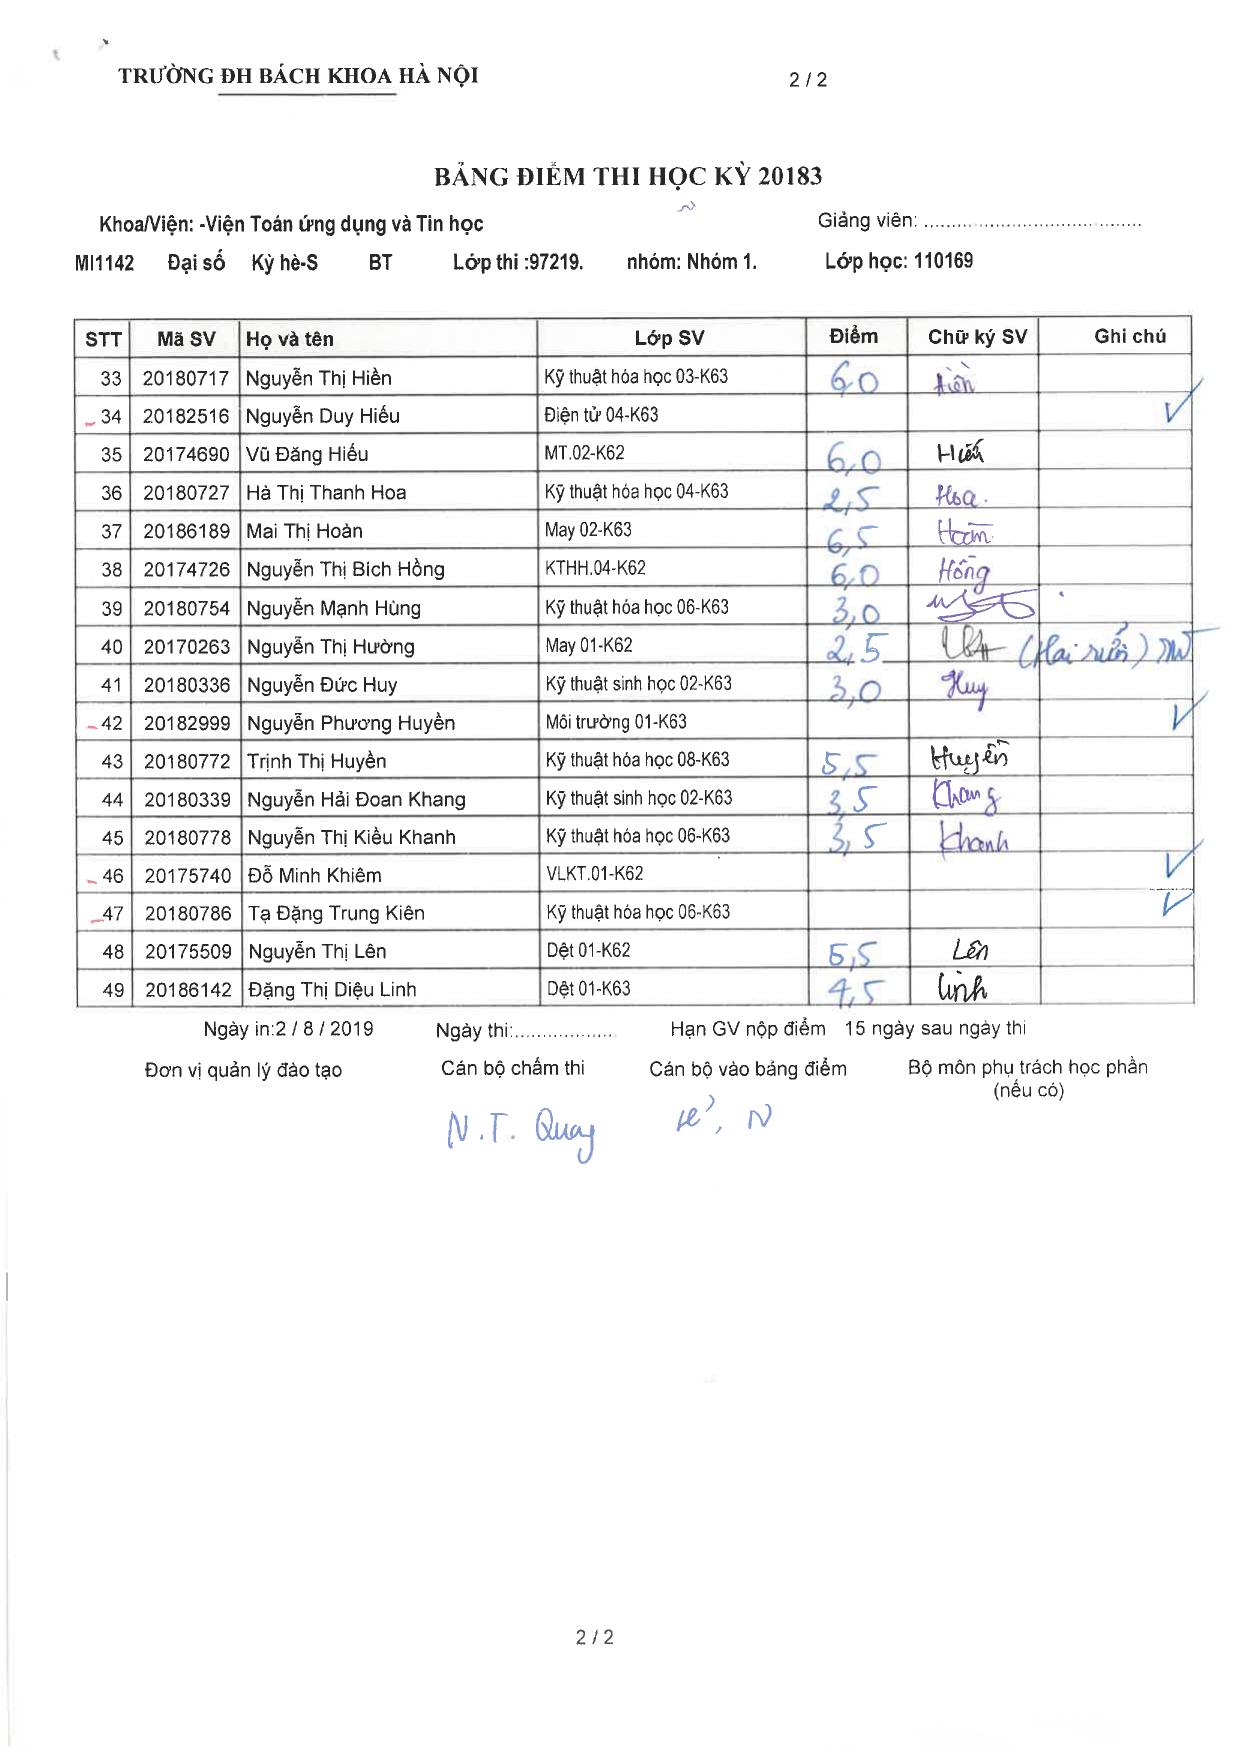 TRƯỜNG ĐH BÁCH KHOA HÀ NỘI 2 / 2
BẢNG ĐIỂM THI HỌC KỲ 20183
Khoa/Viện: -Viện Toán ứng dụng và Tin học Giảng viên: ........................................
MI1142 Đại số Kỳ hè-S BT Lớp thi :97219. nhóm: Nhóm 1. Lớp học: 110169
STT Mã SV Họ và tên Lớp SV Điểm Chữ ký SV Ghi chú
33 20180717 Nguyễn Thị Hiền Kỹ thuật hóa học 03-K63 6,0 Hiền
34 20182516 Nguyễn Duy Hiếu Điện tử 04-K63
35 20174690 Vũ Đăng Hiếu MT.02-K62 6,0 Hiếu
36 20180727 Hà Thị Thanh Hoa Kỹ thuật hóa học 04-K63 2,5 Hoa.
37 20186189 Mai Thị Hoàn May 02-K63 6,5 Hoàn
38 20174726 Nguyễn Thị Bich Hồng KTHH.04-K62 6,0 Hồng
39 20180754 Nguyễn Mạnh Hùng Kỹ thuật hóa học 06-K63 3,0
40 20170263 Nguyễn Thị Hường May 01-K62 2,5 (Hai rưỡi)
41 20180336 Nguyễn Đức Huy Kỹ thuật sinh học 02-K63 3,0 Huy
42 20182999 Nguyễn Phương Huyền Môi trường 01-K63
43 20180772 Trịnh Thị Huyền Kỹ thuật hóa học 08-K63 5,5 Huyền
44 20180339 Nguyễn Hải Đoan Khang Kỹ thuật sinh học 02-K63 3,5 Khang
45 20180778 Nguyễn Thị Kiều Khanh Kỹ thuật hóa học 06-K63 3,5 Khanh
46 20175740 Đỗ Minh Khiêm VLKT.01-K62
47 20180786 Tạ Đặng Trung Kiên Kỹ thuật hóa học 06-K63
48 20175509 Nguyễn Thị Lên Dệt 01-K62 5,5 Lên
49 20186142 Đặng Thị Diệu Linh Dệt 01-K63 4,5 Linh
Ngày in:2 / 8 / 2019 Ngày thi:................... Hạn GV nộp điểm 15 ngày sau ngày thi
Đơn vị quản lý đào tạo Cán bộ chấm thi Cán bộ vào bảng điểm Bộ môn phụ trách học phần
(nếu có)
N.T. Quay
2 / 2